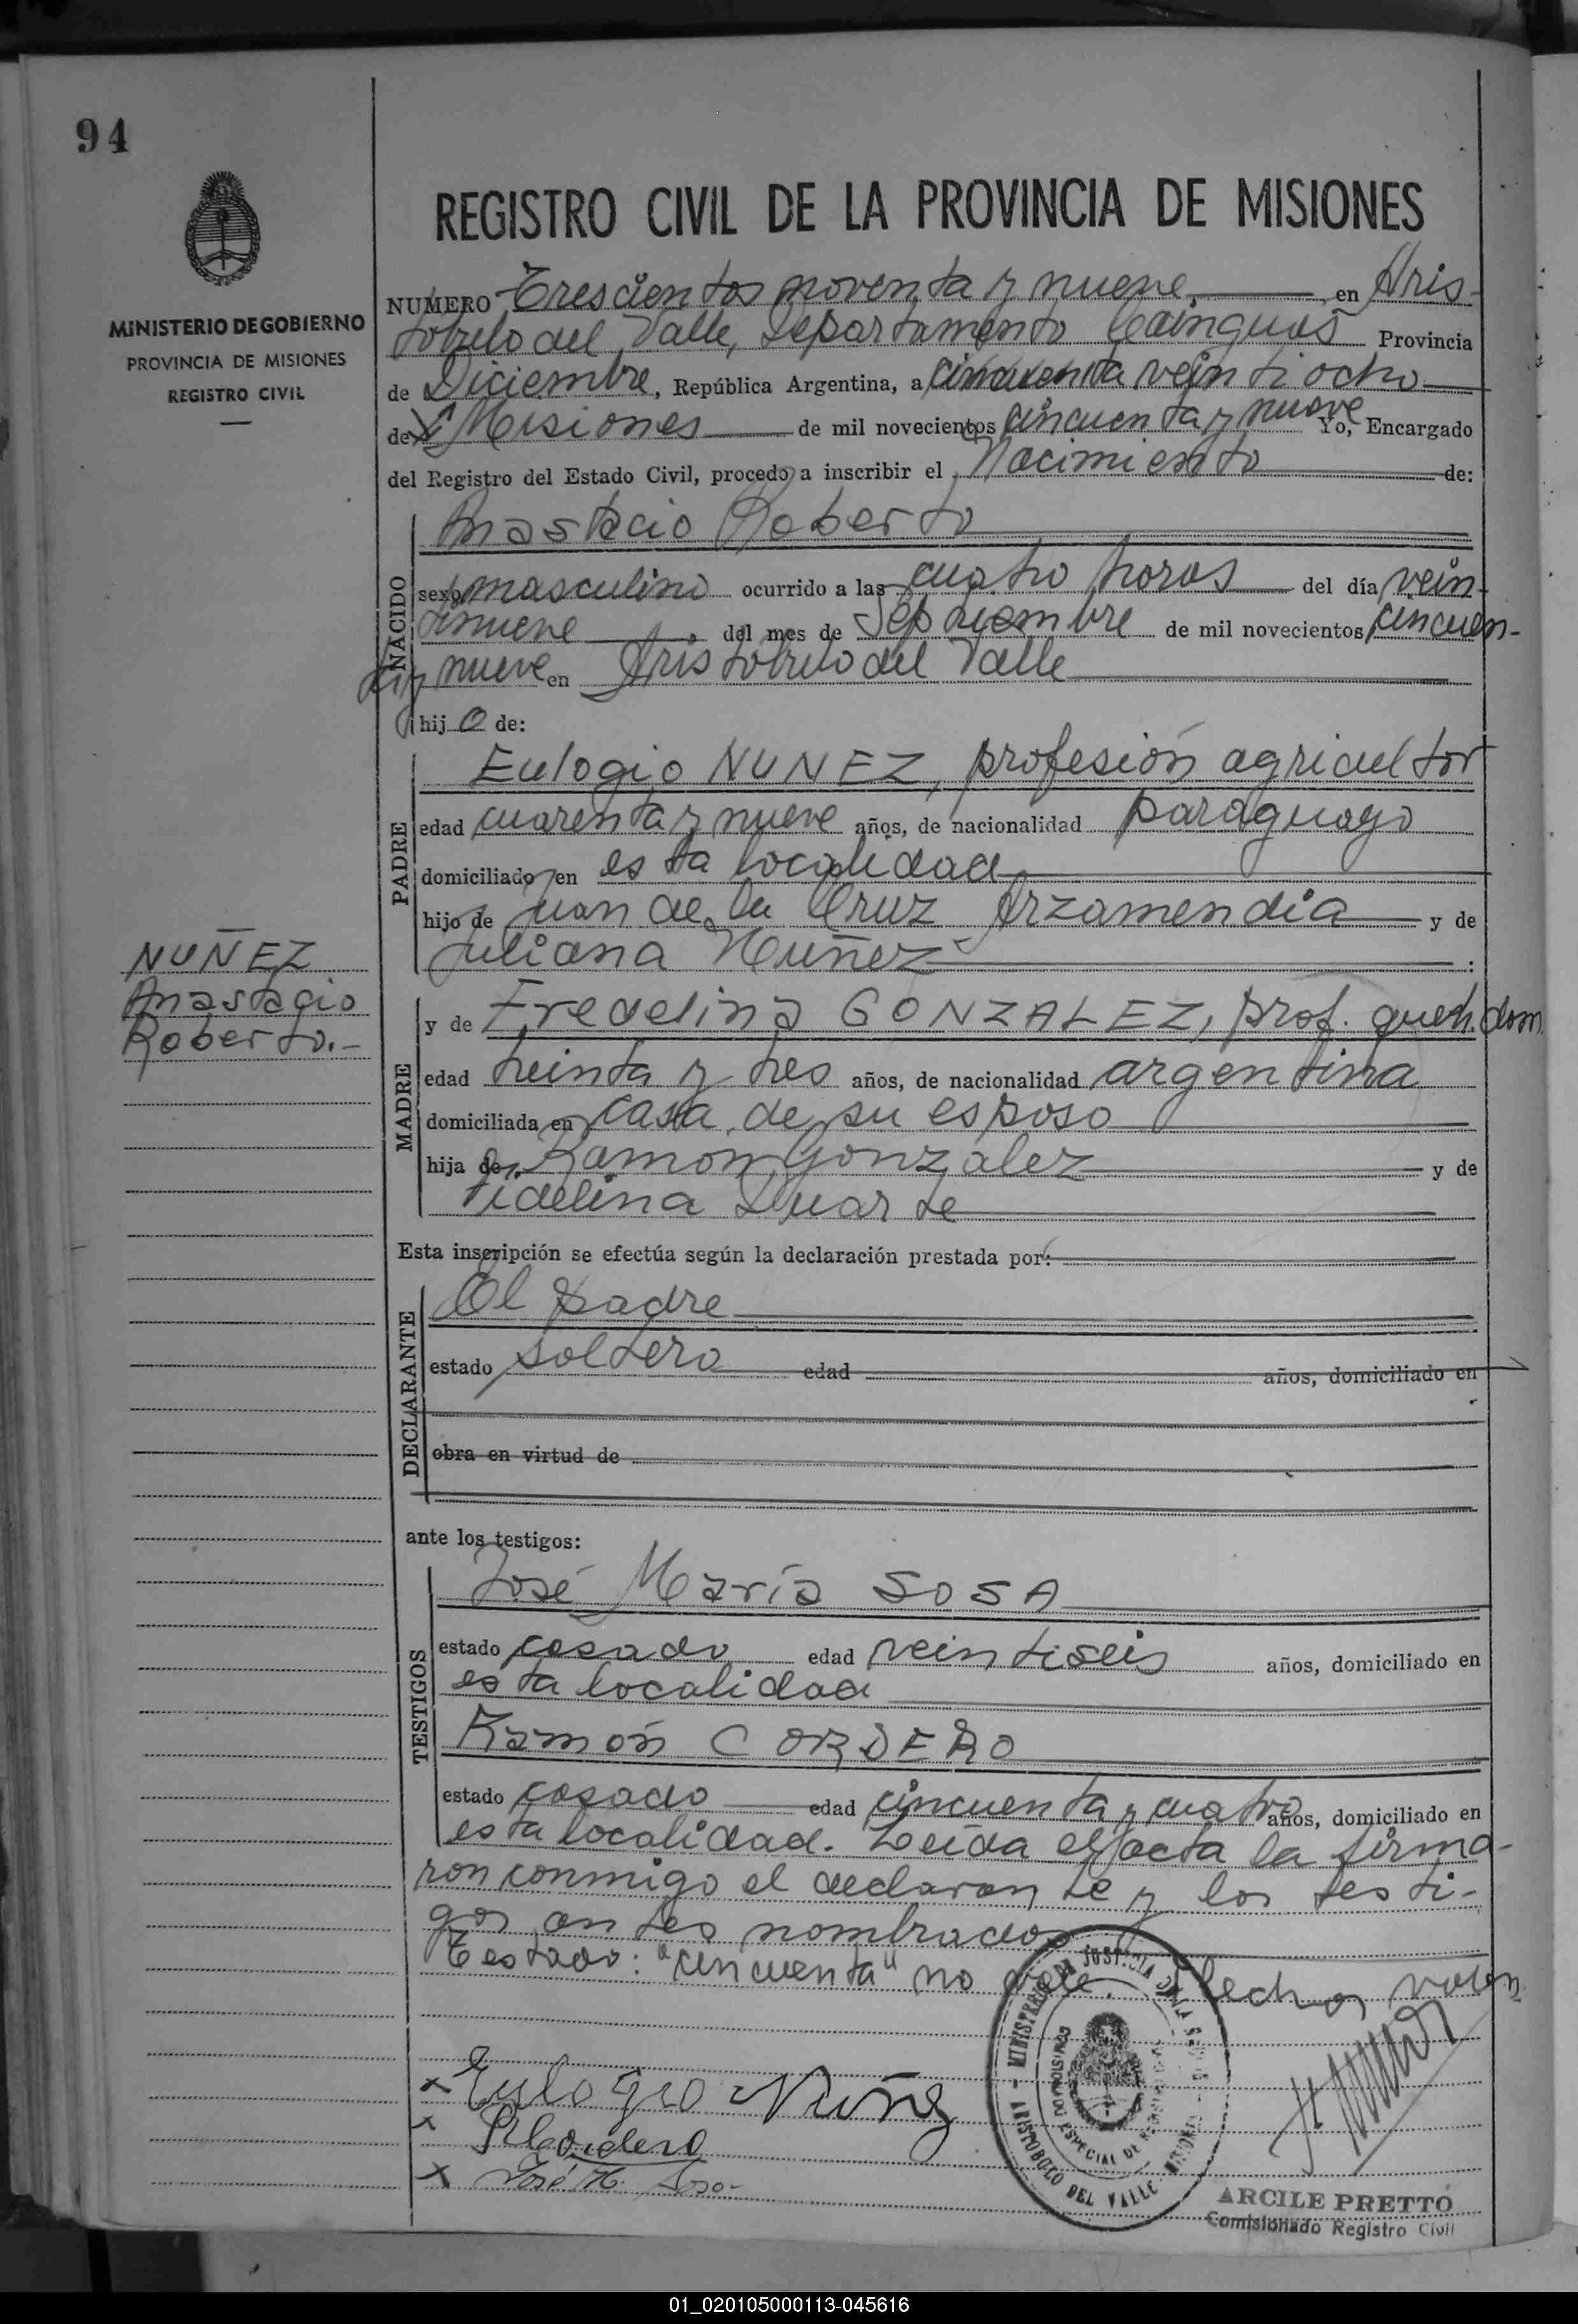 94
MINISTERIO DE GOBIERNO
PROVINCIA DE MISIONES
REGISTRO CIVIL
REGISTRO CIVIL DE LA PROVINCIA DE MISIONES
NUMERO Trescientos noventa y nueve, en Aris-
tobulo del Valle, Departamento Cainguas Provincia
de Diciembre, República Argentina, a cincuenta veintiocho
de Misiones de mil novecientos cincuenta y nueve Yo, Encargado
del Registro del Estado Civil, procedo a inscribir el Nacimiento de:
NACIDO
Anastacio Roberto
sexo masculino ocurrido a las cuatro horas del día vein-
tinueve, del mes de Septiembre de mil novecientos cincuen-
ta y nueve en Aristóbulo del Valle
hijo de:
PADRE
Eulogio NUNEZ, profesión agricultor
edad cuarenta y nueve años, de nacionalidad paraguayo
domiciliado en esta localidad
hijo de Juan de la Cruz Arzamendia y de
Juliana Nuñez :
NUÑEZ
Anastacio
Roberto.-
MADRE
y de Fredelina GONZALEZ, prof. queh. dom.
edad treinta y tres años, de nacionalidad argentina
domiciliada en casa de su esposo
hija de Ramon Gonzalez y de
Fidelina Duarte
Esta inscripción se efectúa según la declaración prestada por:
DECLARANTE
El padre
estado soltero edad años, domiciliado en
obra en virtud de
ante los testigos:
TESTIGOS
José María SOSA
estado casado edad veintiseis años, domiciliado en
esta localidad
Ramón CORDERO
estado casado edad cincuenta y cuatro años, domiciliado en
esta localidad. Leída el acta la firma-
ron conmigo el declarante y los testi-
gos antes nombrados
Testado: "cincuenta" no vale. valen
Eulogio Nuñez
RCordero
José M. Sosa-
MINISTERIO DE JUSTICIA DE LA
ARISTOBULO DEL VALLE - MISIONES
ESPECIAL DE
ARCILE PRETTO
Comisionado Registro Civil
01_020105000113-045616